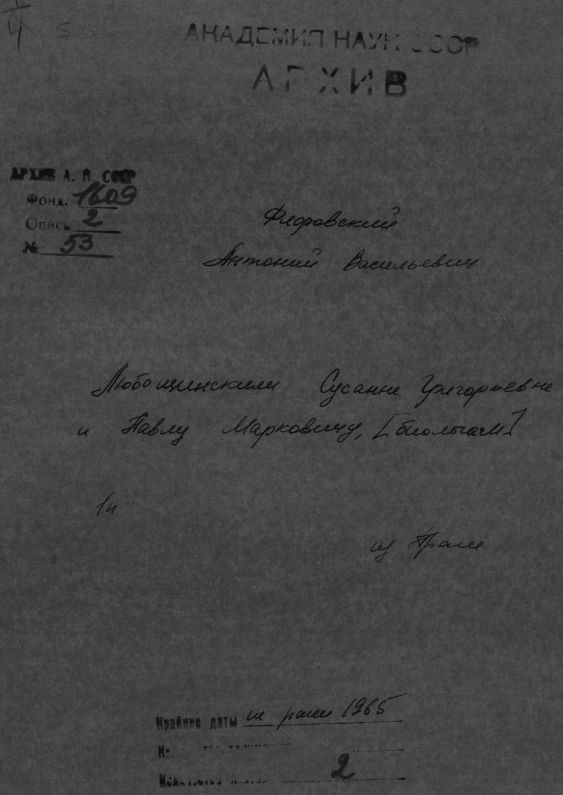 АКАДЕМИЯ НАУК СССР
АРХИВ
АРХИВ А. Н. СССР
Фонд. 1609
Опись 2
№ 53
Флоровский
Антоний Васильевич
Любощинским Сусанне Григорьевне
и Павлу Марковичу, [биологам]
1 п
из Праги
Крайние даты не ранее 1965
2